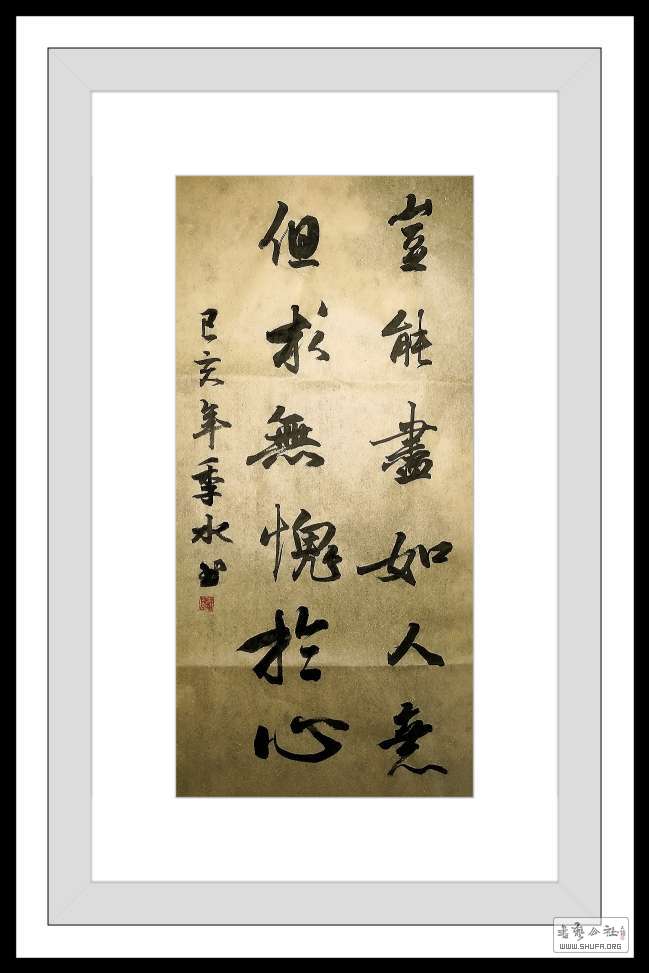 豈能盡如人意
但求無愧於心
己亥年季水书
书艺公社
WWW.SHUFA.ORG